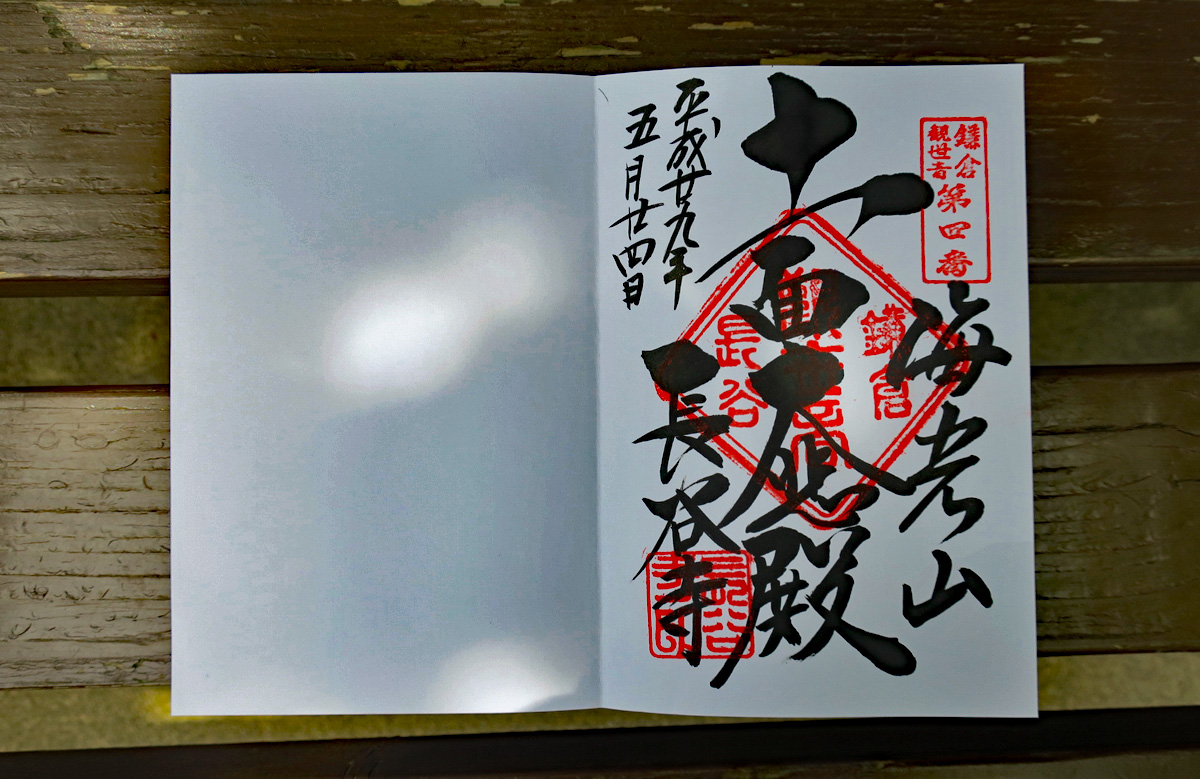 鎌倉
観世音
第四番
海光山
十一面大悲殿
長谷寺
平成廿九年
五月廿四日
鎌倉
長谷